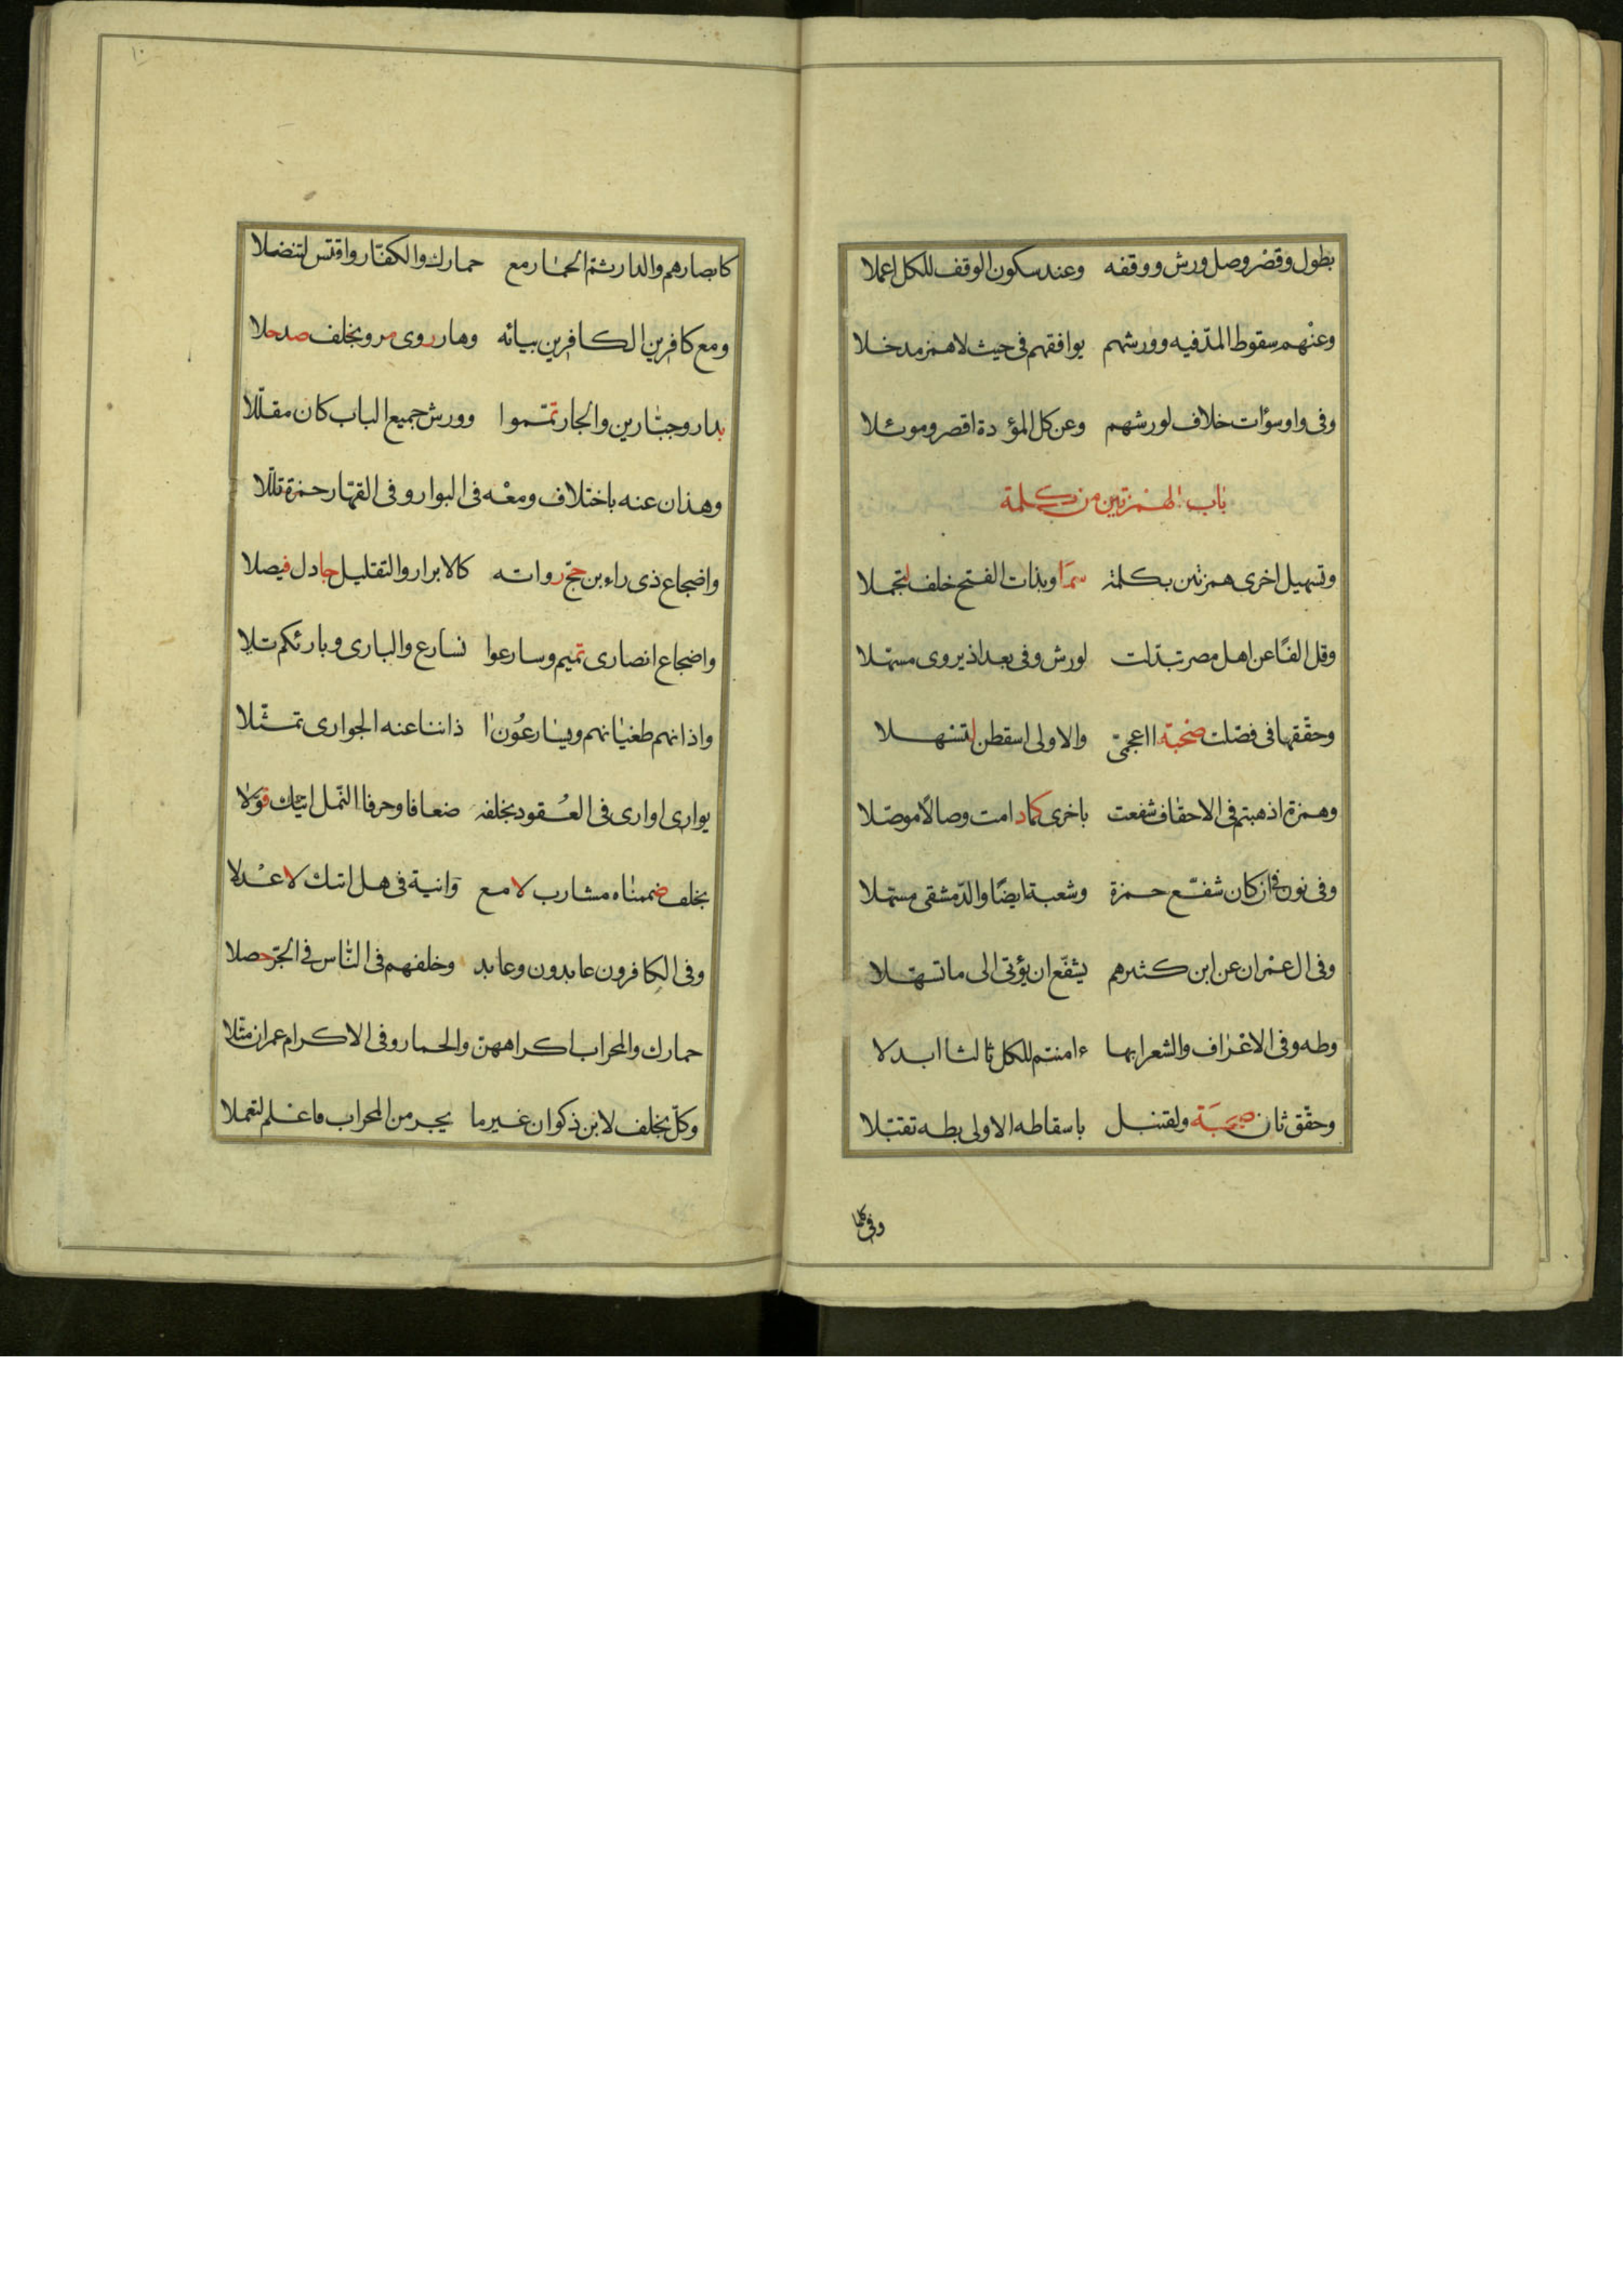 بطول وقصر وصل ورش ووقفه وعند سكون الوقف للكل اعملا
وعنهم سقوط المدّ فيه وورشهم يوافقهم فى حيث لا همز مدخلا
وفى واو سوأت خلاف لورشهم وعن كل المؤدة اقصر وموئلا
باب الهمزتين من كلمة
وتسهيل اخرى همزتين بكلمة سما وبذات الفتح خلف لتجملا
وقل الفًا عن اهل مصر تبدّلت لورش وفى بغداذ يروى مسهّلا
وحقّقها فى فصّلت صحبة ااعجمىّ والاولى اسقطن لتسهلا
وهمزة اذهبتم فى الاحقاف شفعت باخرى كما دامت وصالًا موصّلا
وفى نون فى ان كان شفّع حمزة وشعبة ايضًا والدّمشقى مسهّلا
وفى ال عمران عن ابن كثيرهم يشفّع ان يؤتى الى ما تسهّلا
وطه وفى الاعراف والشعرا بها ءامنتم للكل ثالثا ابدلا
وحقّق ثان صحبة ولقنبل باسقاطه الاولى بطه تقبّلا
وفى كلها
١٠
كابصارهم والدار ثمّ الحمار مع حمارك والكفّار واقتس لتنضلا
ومع كافرين الكافرين بيائه وهار روى مرو بخلف صد حلا
بدار وجبّارين والجار تمّموا وورش جميع الباب كان مقلّلا
وهذان عنه باختلاف ومعه فى البوار وفى القهّار حمزة قلّلا
واضجاع ذى راءين حجّ رواته كالابرار والتقليل جادل فيصلا
واضجاع انصارى تميم وسارعوا نسارع والبارى وبارئكم تلا
واذانهم طغيانهم ويسارعون ا ذاننا عنه الجوارى تمثّلا
يوارى اوارى فى العقود بخلفه ضعافا وحرفا النّمل اتيك قوّلا
بخلف ضممناه مشارب لامع وانية فى هل اتىك لاعدلا
وفى الكافرون عابدون وعابد وخلفهم فى النّاس فى الجرّ حصلا
حمارك والمحراب اكراههنّ والحمار وفى الاكرام عمران مثّلا
وكلّ بخلف لابن ذكوان غير ما يجر من المحراب فاعلم لتعملا